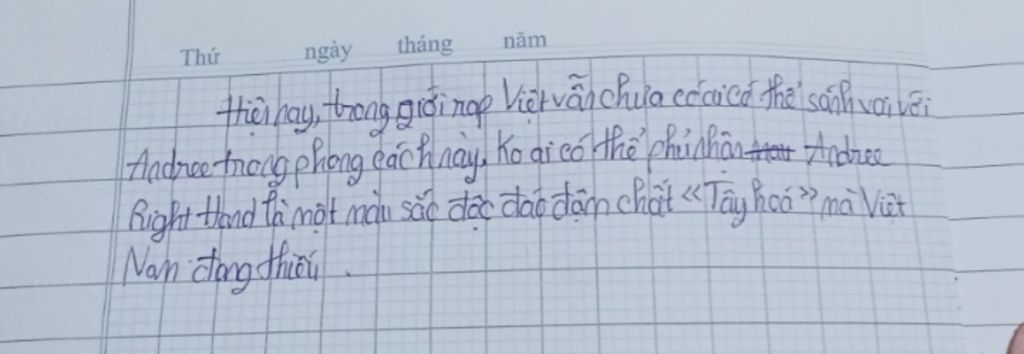 Thứ ngày tháng năm
Hiện nay, trong giới rap Việt vẫn chưa có ai có thể sánh vai với
Andree trong phong cách này. Ko ai có thể phủ nhận Andree
Right Hand là một màu sắc độc đáo đậm chất «Tây hoá» mà Việt
Nam đang thiếu.